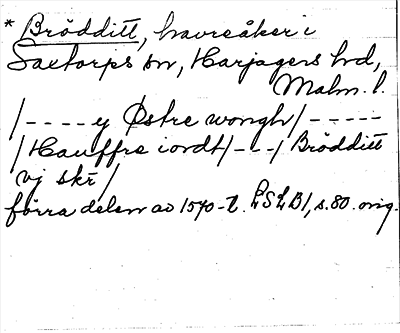 * Brödditt, havreåker i
Saxtorps sn, Harjagers hd,
Malm. l.
/ - - - - y Østre wongh / - - - - -
/ Hauffre iordt / - - - / Brödditt
vj skr /
förra delen av 1570-t. LSLB1, s. 80. orig.